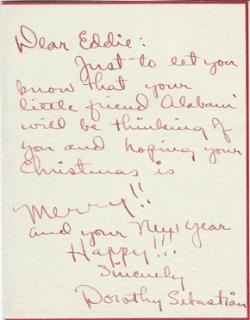 Dear Eddie:
Just to let you
know that your
little friend "Alabam'
will be thinking of
you and hoping your
Christmas is
Merry!!
and your New Year
Happy!!!
Sincerely
Dorothy Sebastian